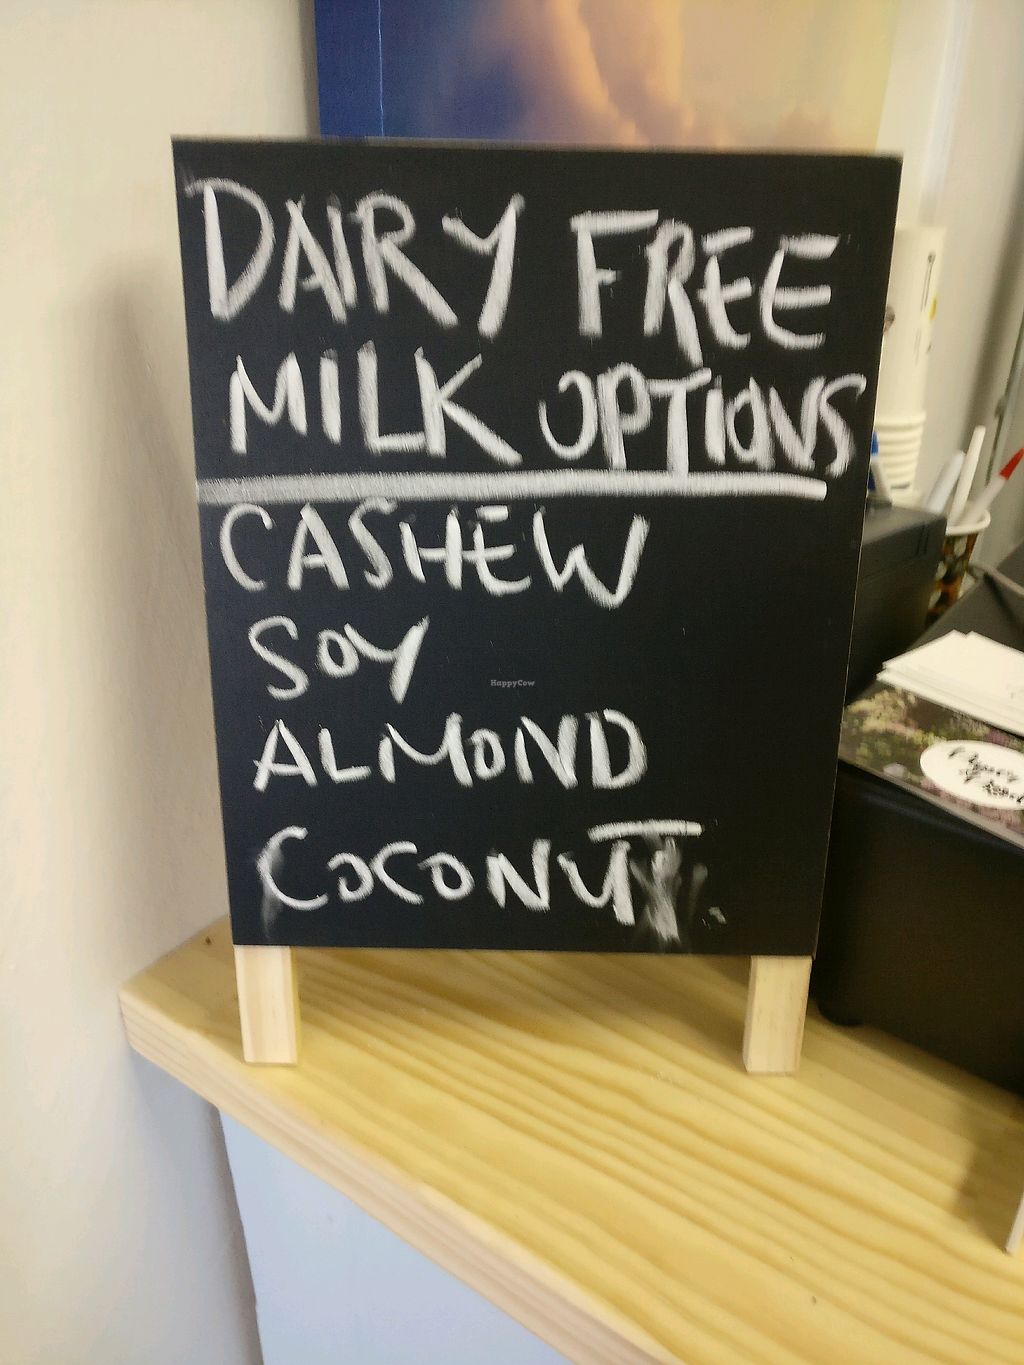 DAIRY FREE
MILK OPTIONS
CASHEW
SOY
HappyCow
ALMOND
COCONUT